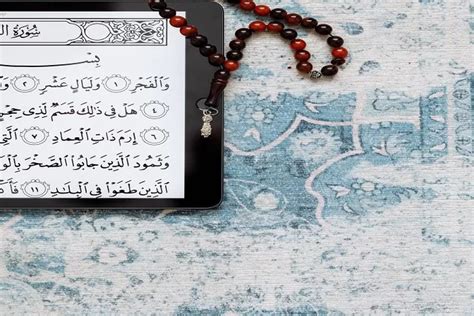 سُورَةُ ال
بِسْمِ
وَالْفَجْرِ ١ وَلَيَالٍ عَشْرٍ ٢
٤ هَلْ فِي ذَٰلِكَ قَسَمٌ لِّذِي حِجْرٍ
٦ إِرَمَ ذَاتِ الْعِمَادِ ٧ الَّتِي
وَثَمُودَ الَّذِينَ جَابُوا الصَّخْرَ بِالْوَا
الَّذِينَ طَغَوْا فِي الْبِلَادِ ١١ فَأَكْ